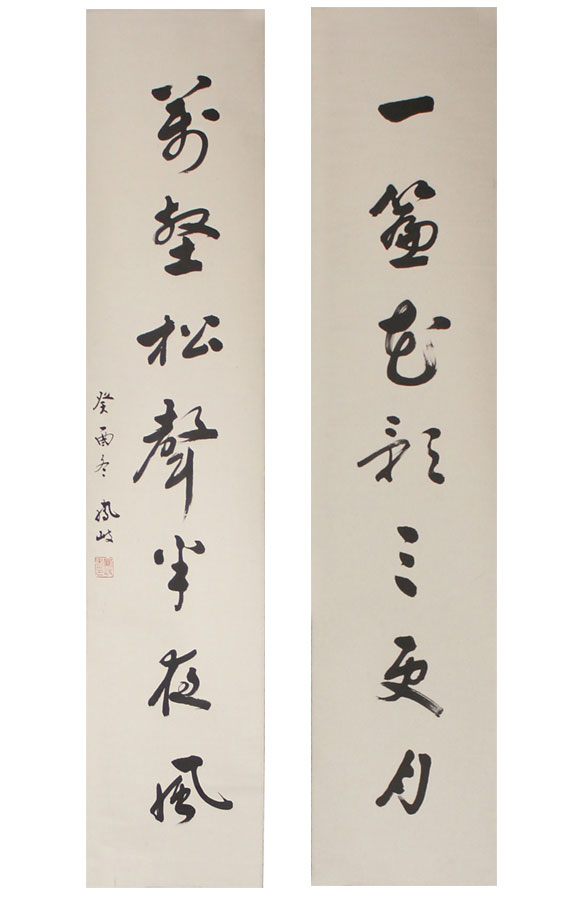 一簾花影三更月
萬壑松聲半夜風
癸酉冬 鳳岐